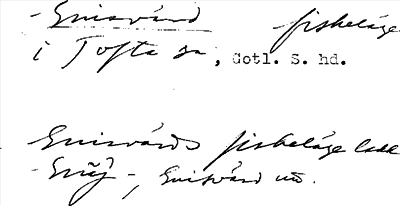 -Gnisvärd fiskeläge
i Tofta sn, Gotl. S. hd.
Gnisvärds fiskeläge
-, Gnisvärd